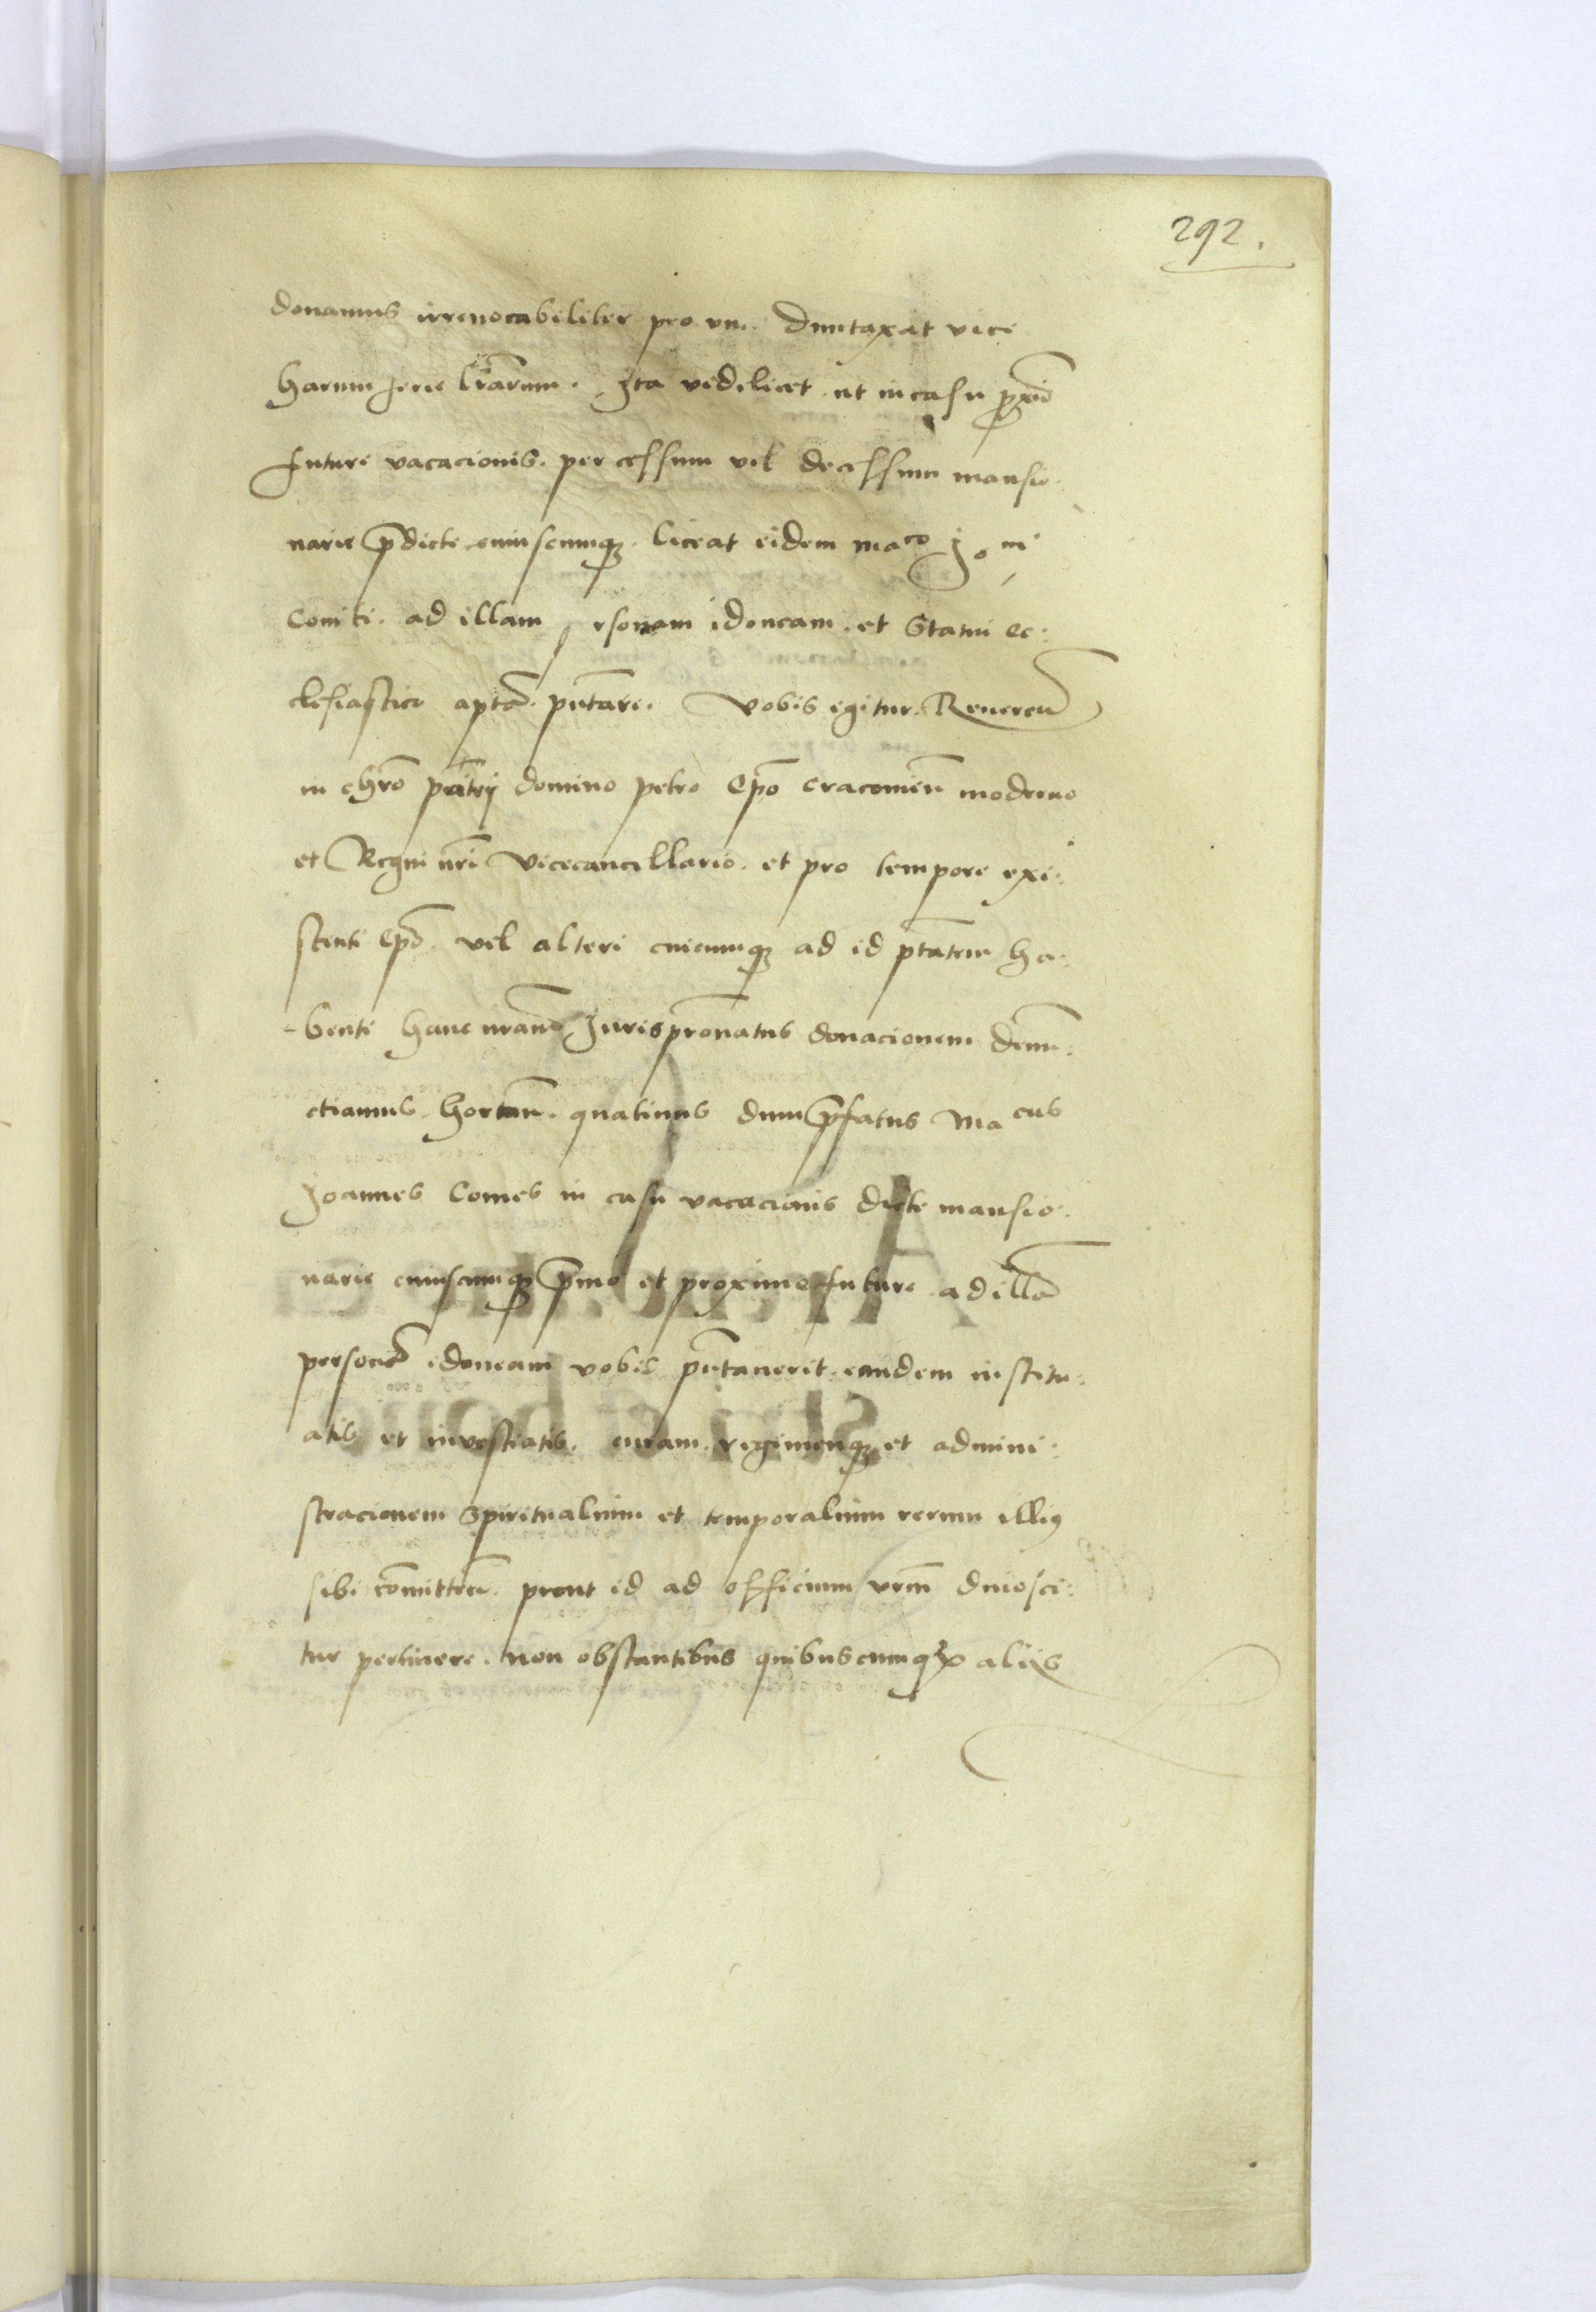 292.
donamus irrevocabiliter pro un. duntaxat vice
harum serie lrarum. Ita videlicet ut in casu
future vacacionis. per cessum vel decessum mansio
narie pdicte cuiuscunqz. liceat eidem maco Jo ni
Comiti. ad illam rsonam idoneam. et statui ec:
clesiastico aptã. pntare. Vobis igitur. Reveren
in chro patri domino petro Epo cracovien moderno
et Regni nri Vicecancellario. et pro tempore exi:
stenti Epo. vel alteri cuicunqz ad id ptatem ha:
-benti hanc nram Jurispronatus donacionem denu:
ctiamus. hortan. quatinus dum pfatus Ma cus
Joannes Comes in casu vacacionis dicte mansio.
narie cuiuscunqz pmo et proxime future ad illã
personã idoneam vobis pntaverit. eandem institu:
atis et investiatis. curam. regimenqz et admini:
stracionem spiritualium et temporalium rerum illius
sibi comitten. prout id ad officium vrm dinosci:
tur pertinere. non obstantibus quibuscunqz aliis